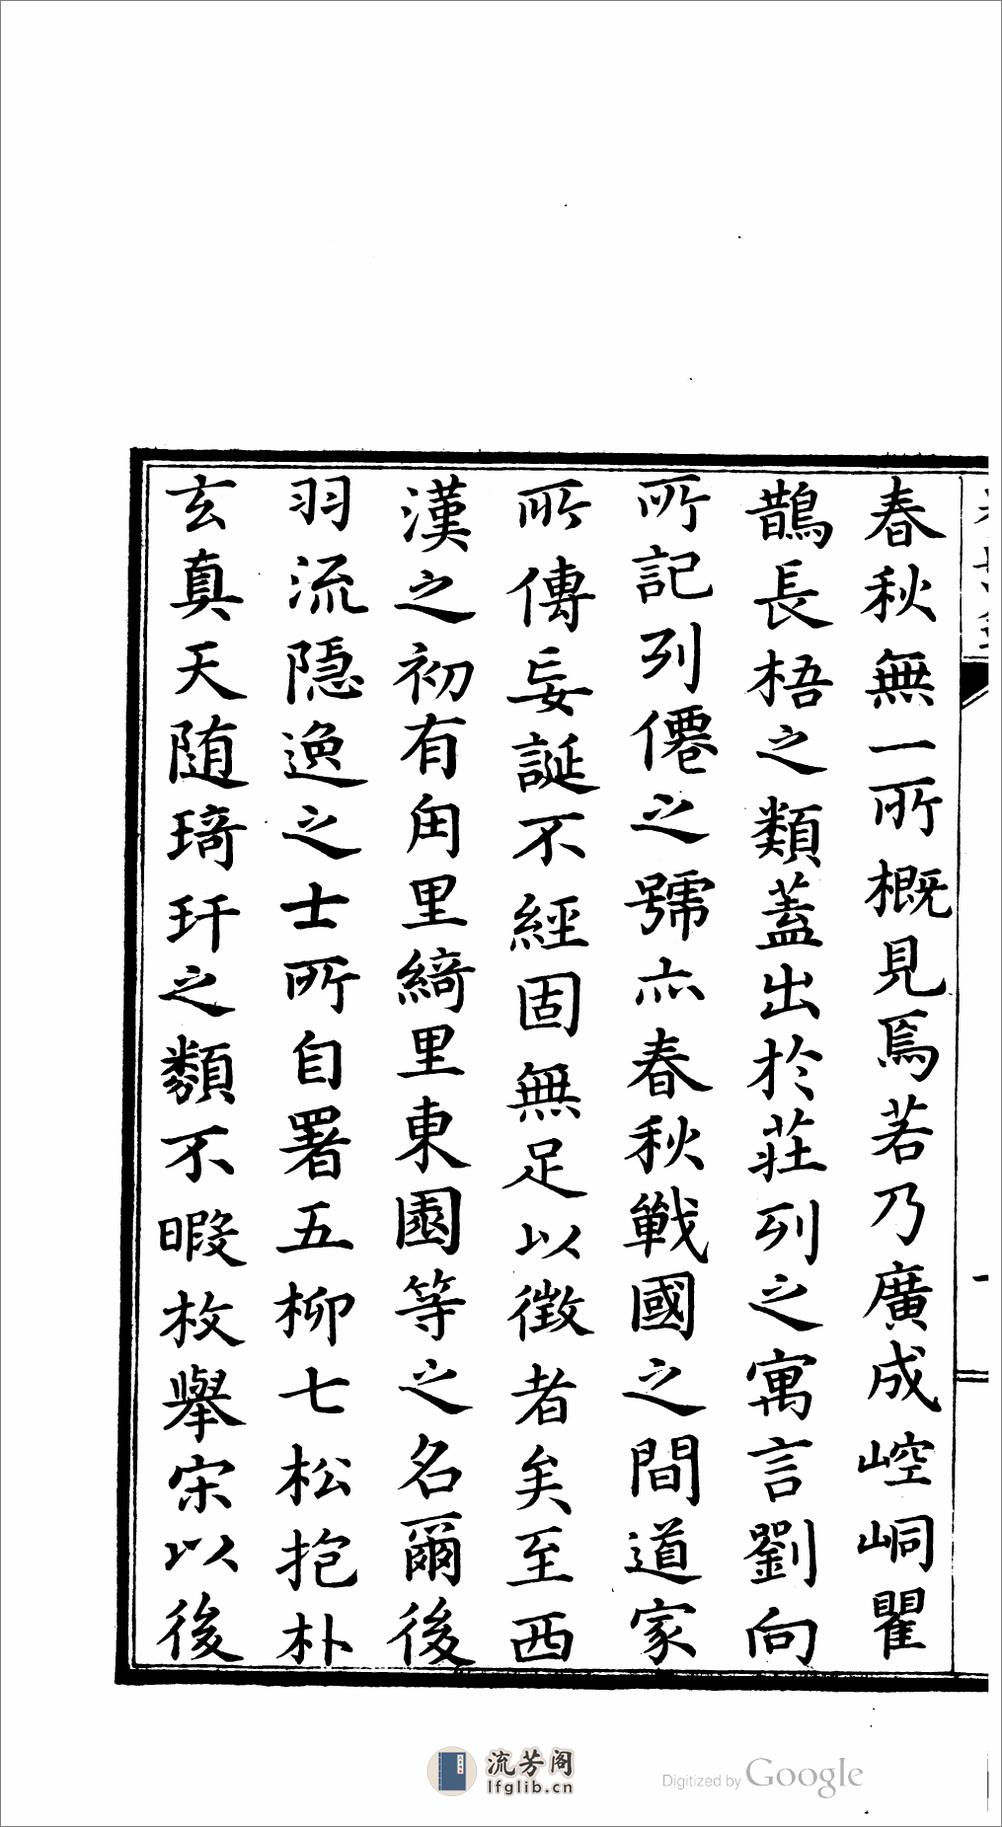 春秋無一所概見焉若乃廣成崆峒瞿
鵲長梧之類蓋出於莊列之寓言劉向
所記列僊之號亦春秋戰國之間道家
所傳妄誕不經固無足以徵者矣至西
漢之初有甪里綺里東園等之名爾後
羽流隱逸之士所自署五柳七松抱朴
玄真天随琦玕之類不暇枚舉宋以後
一
流芳阁
lfglib.cn
Digitized by Google